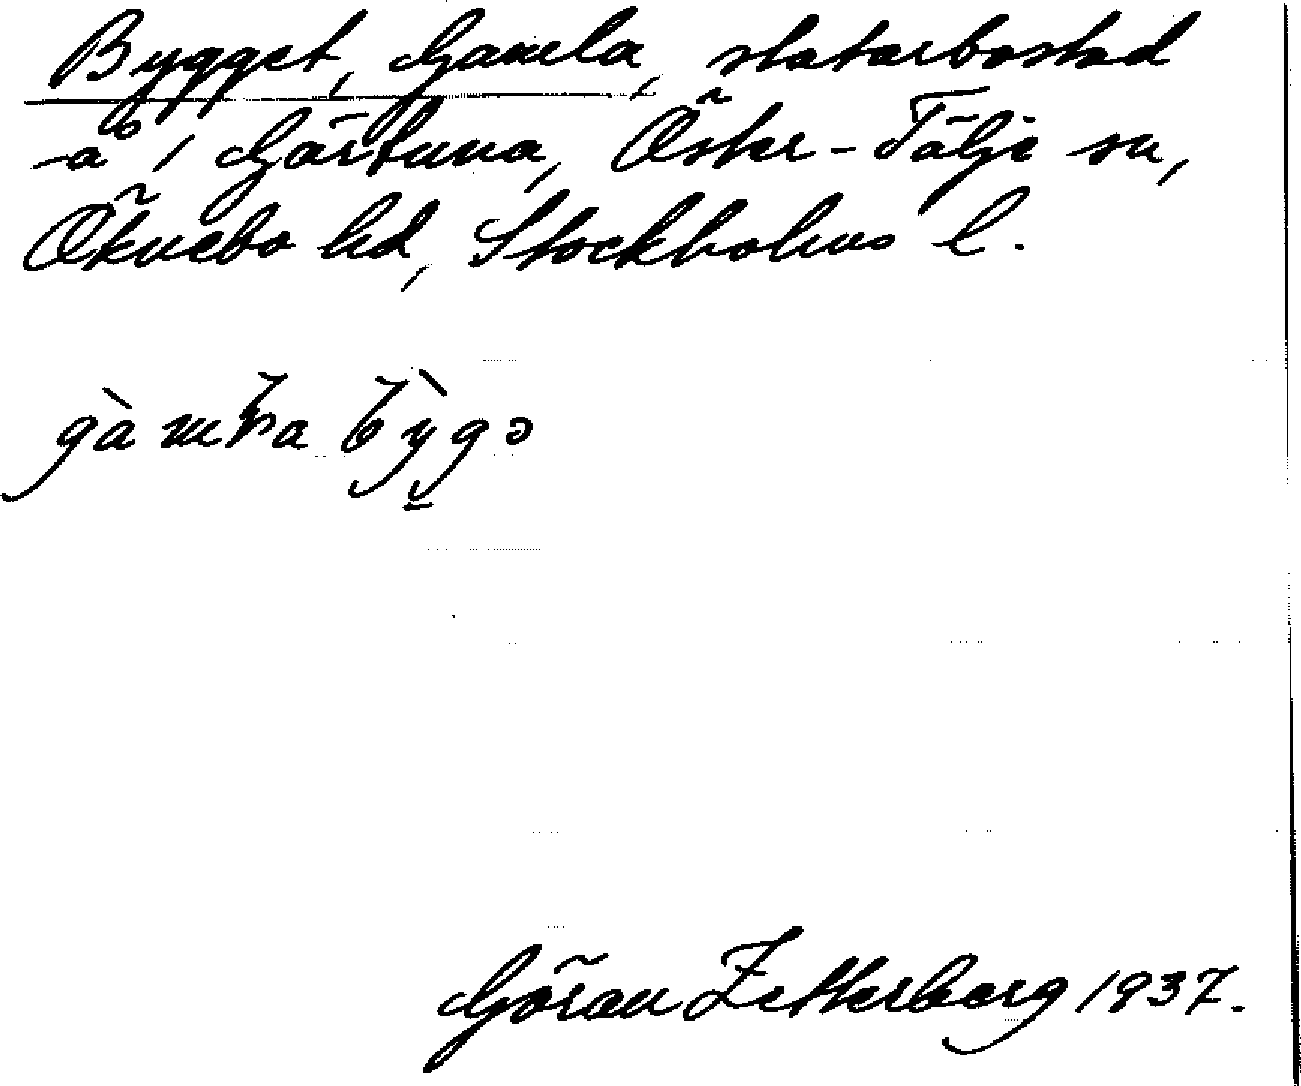 Bygget, Gamla, statarbostad
å 1 Gärtuna, Öster-Tälje sn,
Öknebo hd, Stockholms l.
gàmla bỳgə
Göran Zetterberg 1937.